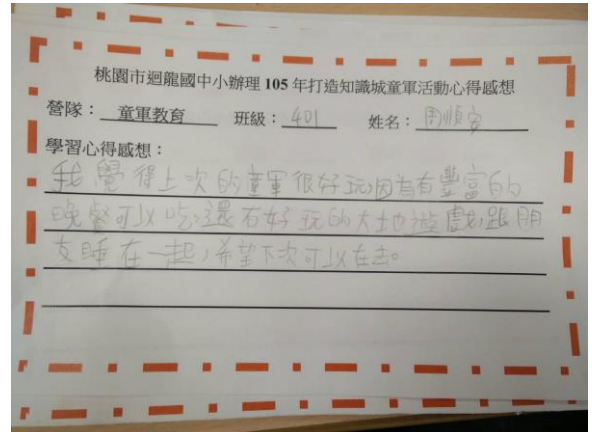 桃園市迴龍國中小辦理 105 年打造知識城童軍活動心得感想
營隊：童軍教育 班級：401 姓名：周順安
學習心得感想：
我覺得上次的童軍很好玩,因為有豐富的
晚餐可以吃,還右好玩的大地遊戲,跟朋
友睡在一起,希望下次可以在去。